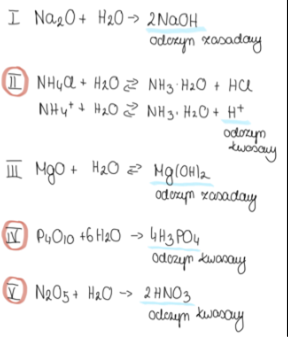 I Na2O + H2O → 2NaOH
odczyn zasadowy
II NH4Cl + H2O ⇄ NH3·H2O + HCl
NH4+ + H2O ⇄ NH3·H2O + H+
odczyn
kwasowy
III MgO + H2O ⇄ Mg(OH)2
odczyn zasadowy
IV P4O10 + 6H2O → 4H3PO4
odczyn kwasowy
V N2O5 + H2O → 2HNO3
odczyn kwasowy